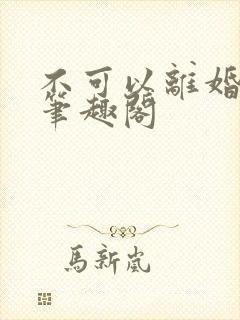 不可以離婚
筆趣閣
馬新嵐